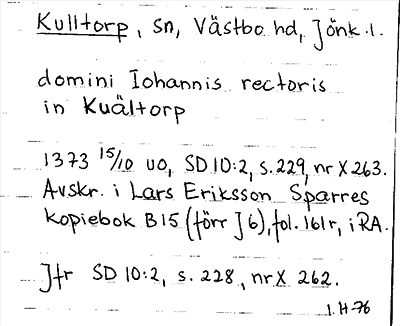 Kulltorp, sn, Västbo hd, Jönk.l.
domini Iohannis rectoris
in Kuältorp
1373 15/10 uo, SD 10:2, s.229, nr X 263.
Avskr. i Lars Eriksson Sparres
kopiebok B15 (förr J 6), fol. 161r, i RA.
Jfr SD 10:2, s. 228, nr X 262.
I. H-76